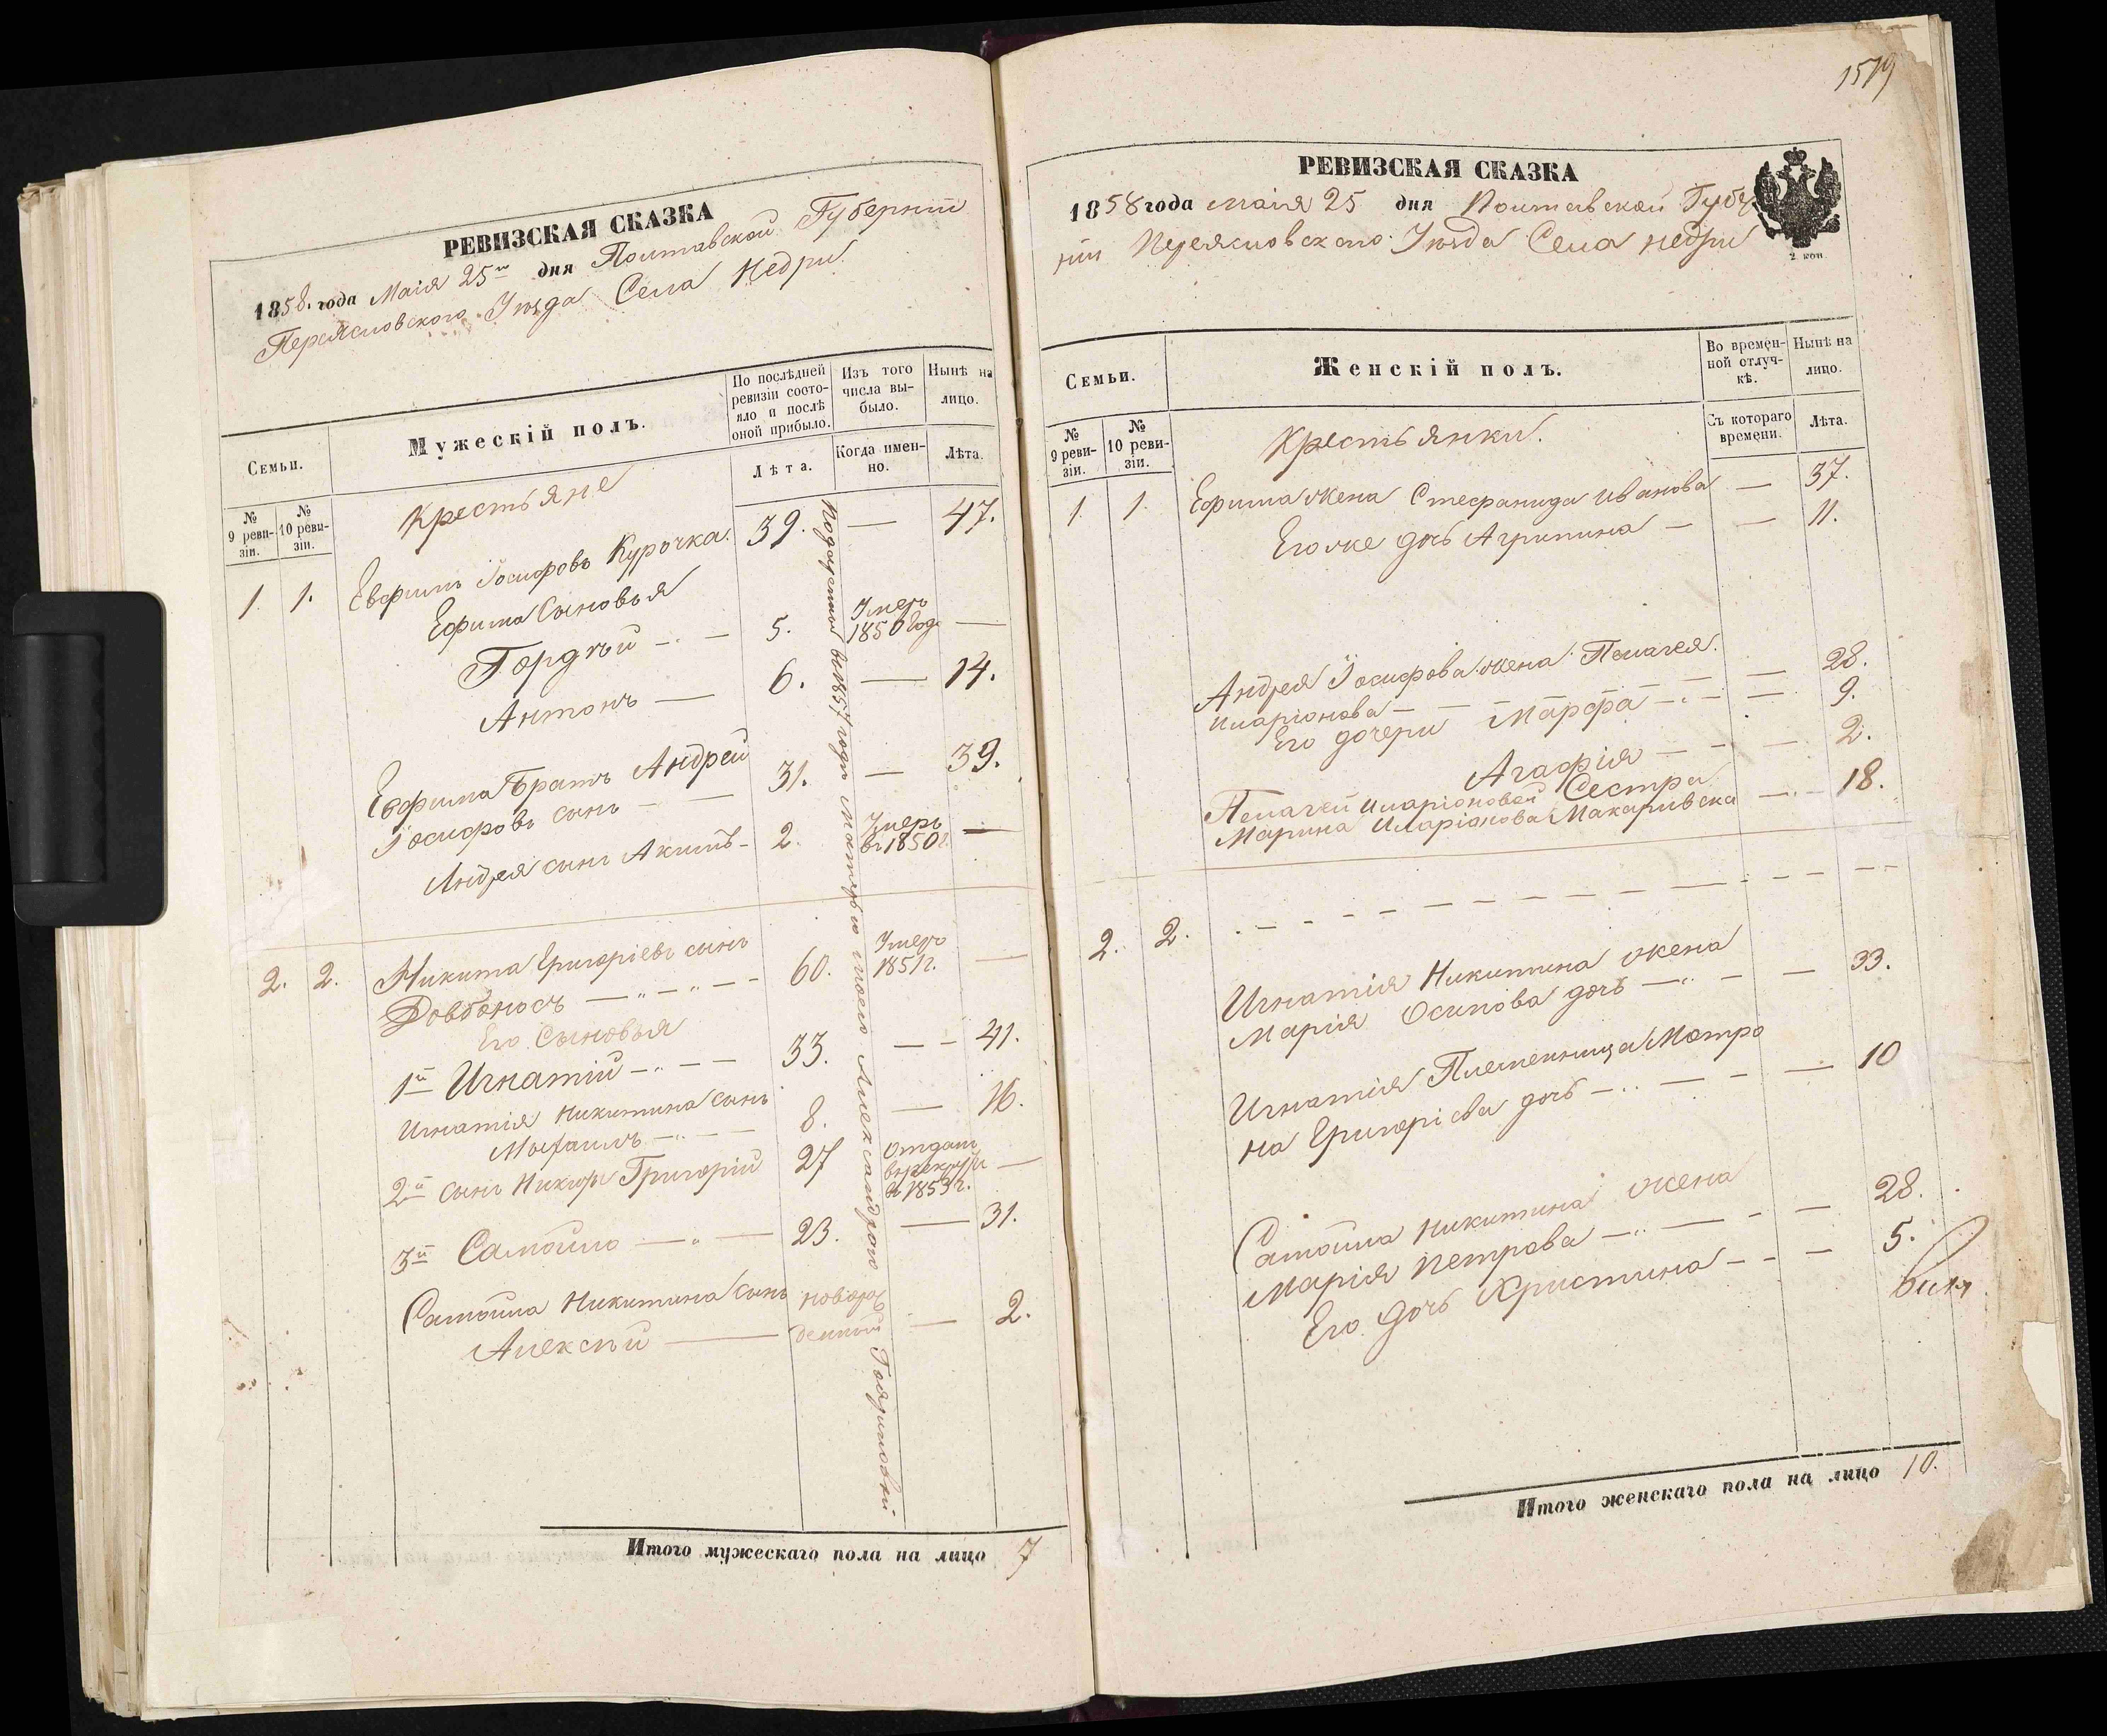 РЕВИЗСКАЯ СКАЗКА
1858 года Маія 25го дня Полтавской Губерніи
Переясловского Уѣзда Села Недри
Семьи.
Мужескій полъ.
По послѣдней ревизіи состояло и послѣ оной прибыло.
Изъ того числа выбыло.
Ныне на лицо.
№ 9 ревизіи.
№ 10 ревизіи.
Лѣта.
Когда именно.
Лѣта.
Крестьяне
1. 1. Евфимъ Іосифовъ Курочка. 39. — 47.
Ефима Сыновья
Гордѣй — 5. Умеръ 1850 года —
Антонъ — 6. — 14.
Евфима Братъ Андрей
Іосифовъ сынъ — 31. — 39.
Андрея сынъ Акимъ — 2. Умеръ въ 1850 г. —
2. 2. Никита Григоріевъ сынъ
Довбоносъ — 60. Умеръ 1851 г. —
Его Сыновья
1й Игнатій — 33. — 41.
Игнатія Никитина сынъ
Михаилъ — 8. — 16.
2й сынъ Григорій 27 Отданъ в рекруты в 1853 г. —
3й Самойло — 23. — 31.
Самойла Никитина сынъ новорож
Алексѣй — денный — 2.
1857 года матерью моею Александрою
Итого мужескаго пола на лицо 7
1519
РЕВИЗСКАЯ СКАЗКА
1858 года маія 25 дня Полтавской Губер
ніи Переясловского Уѣзда Села Недри
2 коп
Семьи.
Женскій полъ.
Во временной отлучкѣ.
Нынѣ на лицо.
№ 9 ревизіи.
№ 10 ревизіи.
Съ котораго времени.
Лѣта.
Крестьянки.
1. 1. Ефима жена Стефанида Иванова — 37.
Его же дочь Агрипина — — 11.
Андрея Іосифова жена Пелагея
Иларіонова — — 28.
Его дочери Марфа — — 9.
Агафія — — 2.
Пелагеи Иларіоновой Сестра
Марина Иларіонова Макаривска — 18.
2. 2. — — — — — — — —
Игнатія Никитина жена
Марія Осипова дочь — — 33.
Игнатія Племенница Мотро
на Григоріева дочь — — 10
Самойла Никитина жена
Марія Петрова — — 28.
Его дочь Христина — — 5.
Итого женскаго пола на лицо 10.